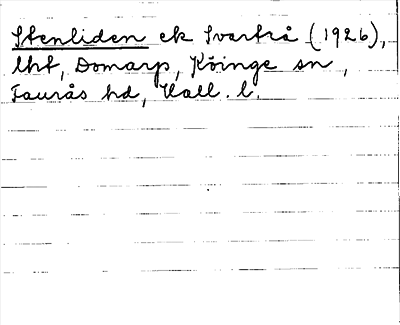 Stenliden ek Svartrå (1926),
lht, Domarp, Köinge sn,
Faurås hd, Hall. l.